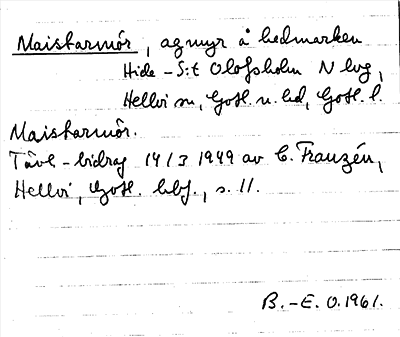 Maistarmór, agmyr å hedmarken
Hide - S:t Olofsholm N lvg,
Hellvi sn, Gotl. n. hd, Gotl. l.
Maistarmór.
Tävl-bidrag 14/3 1949 av C. Franzén,
Hellvi, Gotl. hbf., s. 11.
B.-E. O. 1961.